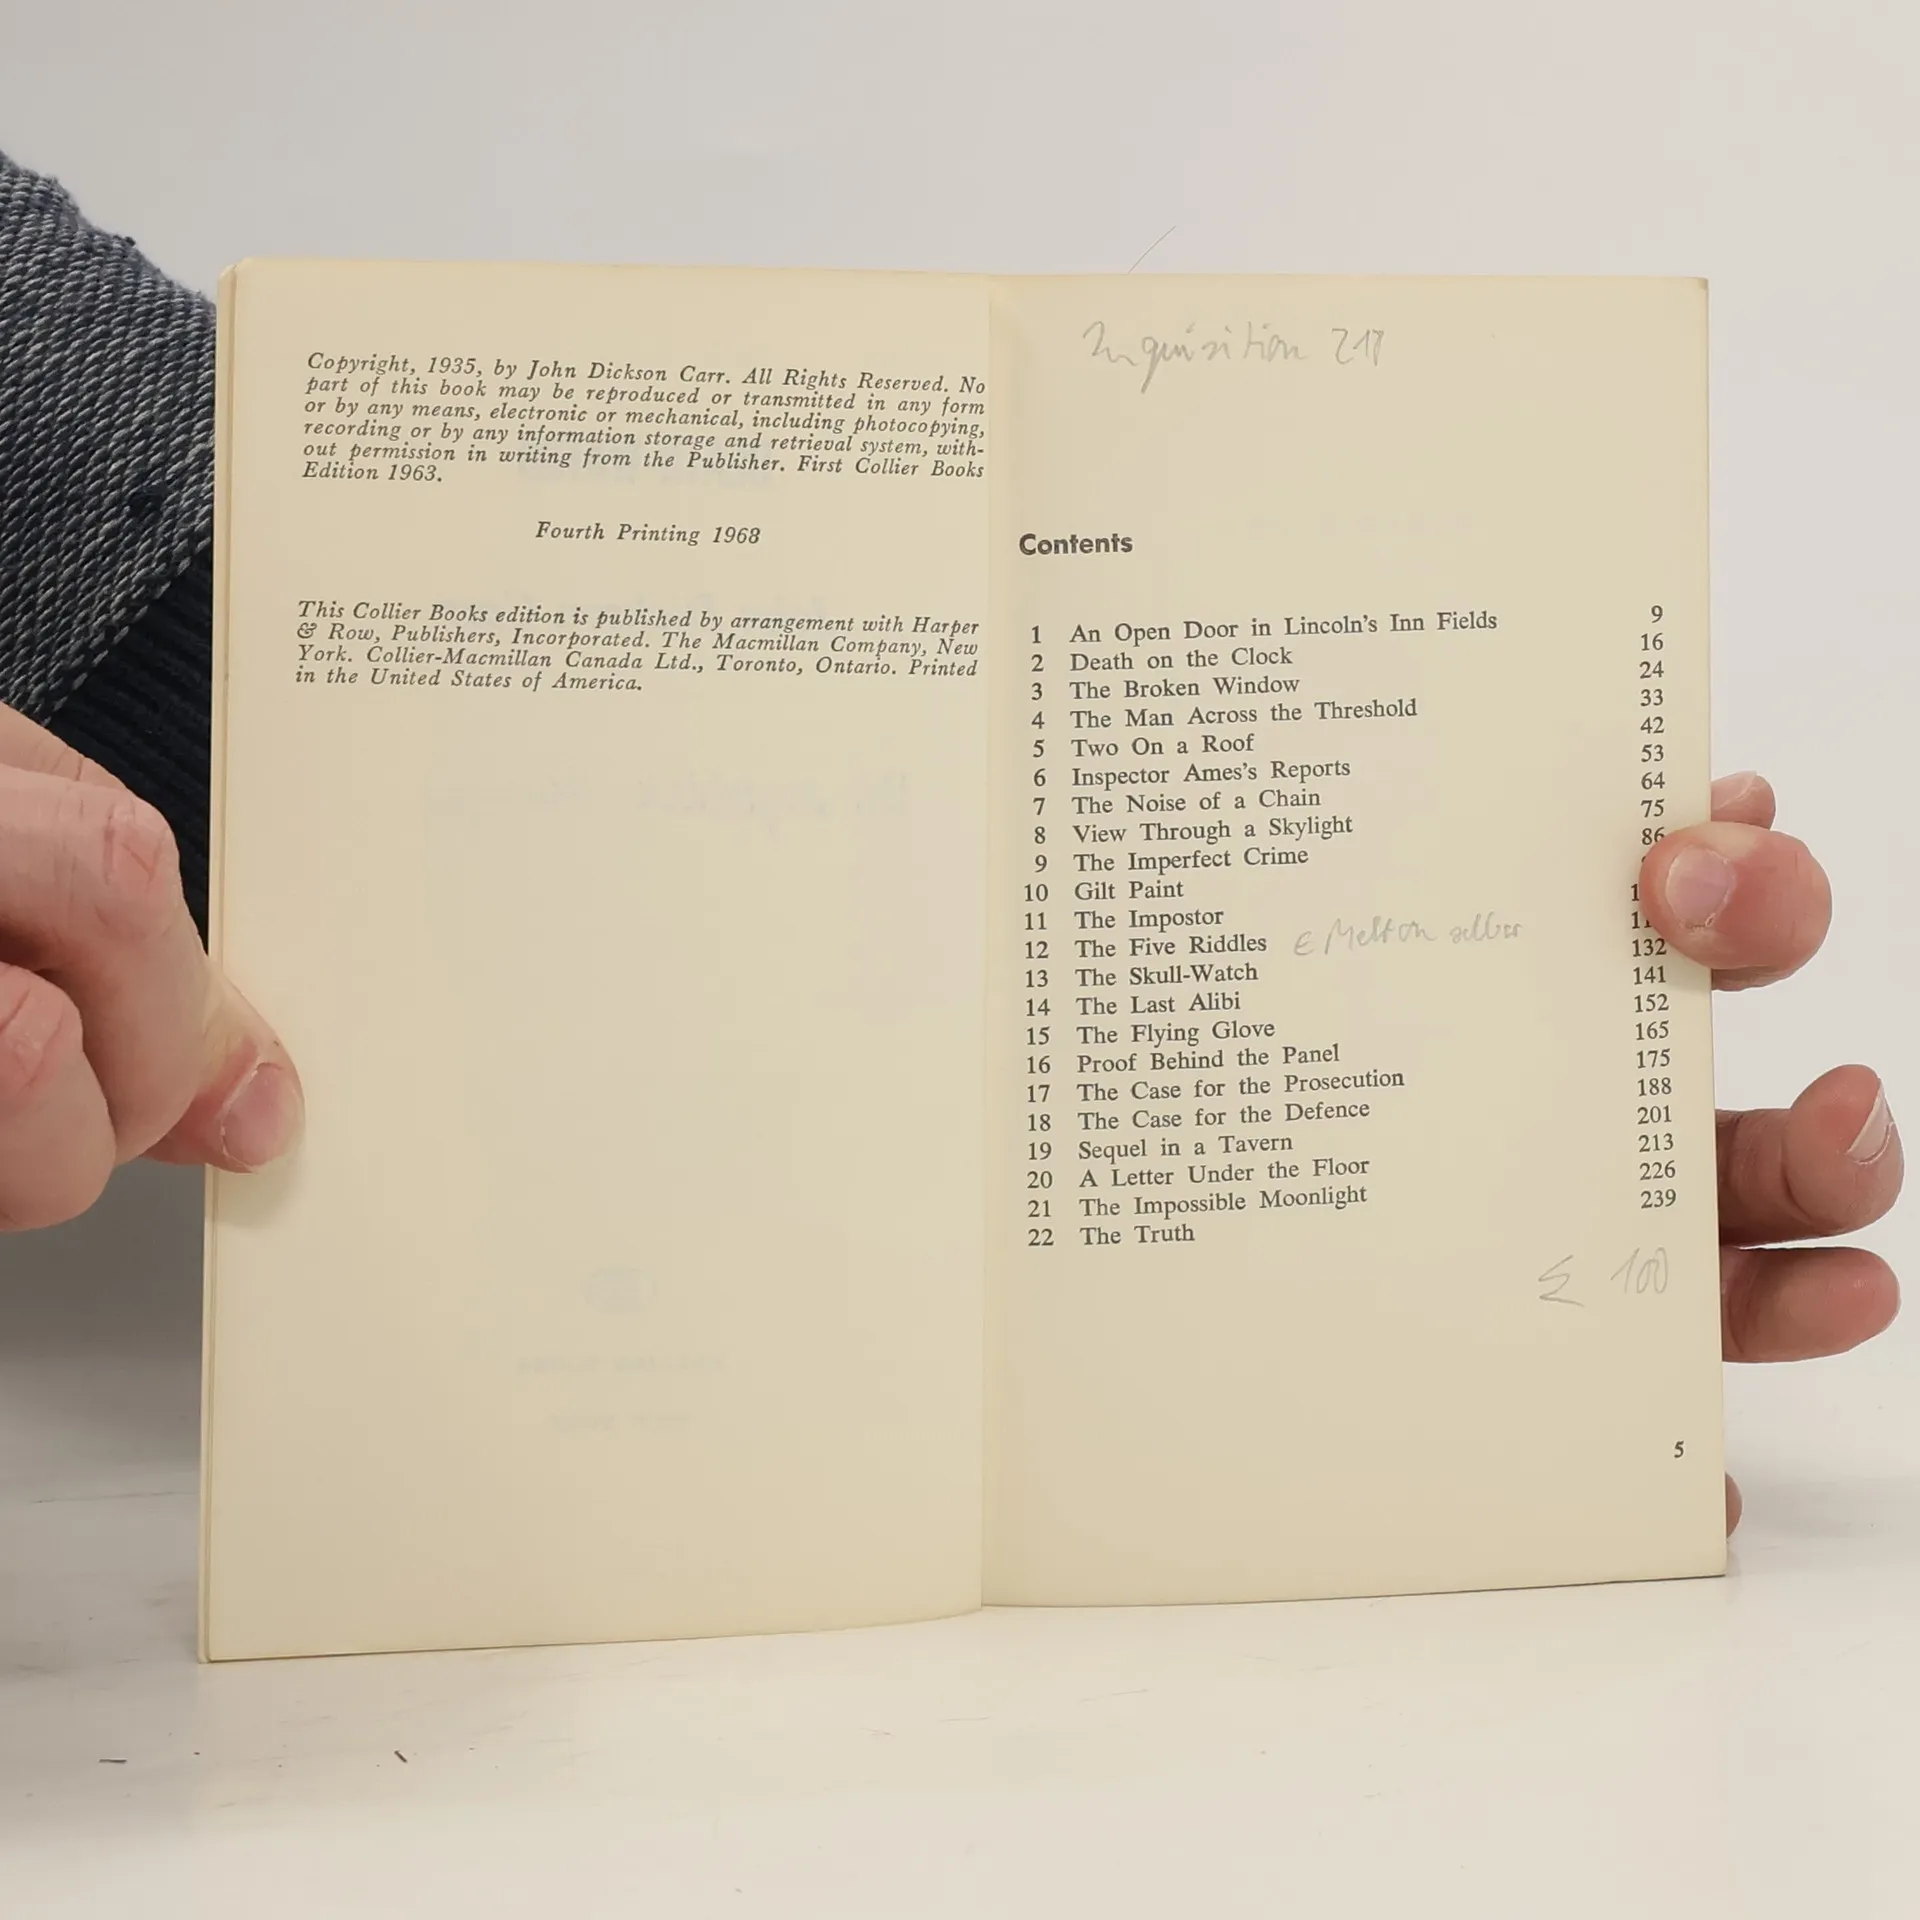 Copyright, 1935, by John Dickson Carr. All Rights Reserved. No
part of this book may be reproduced or transmitted in any form
or by any means, electronic or mechanical, including photocopying,
recording or by any information storage and retrieval system, with-
out permission in writing from the Publisher. First Collier Books
Edition 1963.
Fourth Printing 1968
This Collier Books edition is published by arrangement with Harper
& Row, Publishers, Incorporated. The Macmillan Company, New
York. Collier-Macmillan Canada Ltd., Toronto, Ontario. Printed
in the United States of America.
Inquisition 218
Contents
1 An Open Door in Lincoln's Inn Fields 9
2 Death on the Clock 16
3 The Broken Window 24
4 The Man Across the Threshold 33
5 Two On a Roof 42
6 Inspector Ames's Reports 53
7 The Noise of a Chain 64
8 View Through a Skylight 75
9 The Imperfect Crime 86
10 Gilt Paint
11 The Impostor
12 The Five Riddles Melton selber
13 The Skull-Watch 132
14 The Last Alibi 141
15 The Flying Glove 152
16 Proof Behind the Panel 165
17 The Case for the Prosecution 175
18 The Case for the Defence 188
19 Sequel in a Tavern 201
20 A Letter Under the Floor 213
21 The Impossible Moonlight 226
22 The Truth 239
100
5